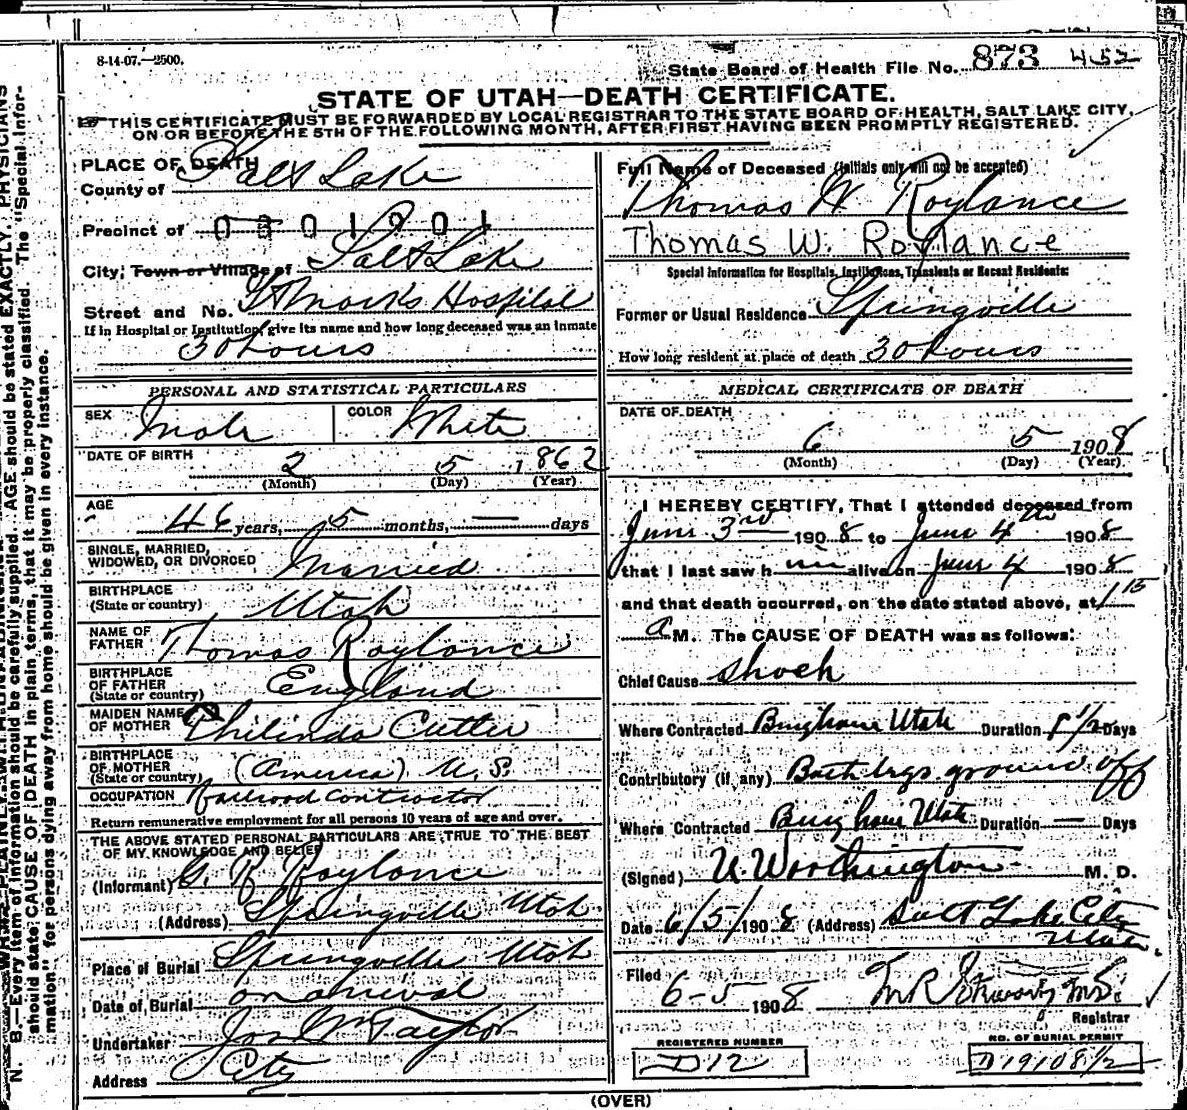 8-14-07.—2500.
State Board of Health File No. 873 452
STATE OF UTAH—DEATH CERTIFICATE.
THIS CERTIFICATE MUST BE FORWARDED BY LOCAL REGISTRAR TO THE STATE BOARD OF HEALTH, SALT LAKE CITY,
ON OR BEFORE THE 5TH OF THE FOLLOWING MONTH, AFTER FIRST HAVING BEEN PROMPTLY REGISTERED.
PLACE OF DEATH
County of Salt Lake
Precinct of 0301901
City; Town or Village of Salt Lake
Street and No. St Mark's Hospital
If in Hospital or Institution give its name and how long deceased was an inmate
30 hours
Full Name of Deceased (initials only will not be accepted)
Thomas W. Roylance
Thomas W. Roylance
Special Information for Hospitals, Institutions, Transients or Recent Residents:
Former or Usual Residence Springville
How long resident at place of death 30 hours
PERSONAL AND STATISTICAL PARTICULARS
SEX Male COLOR White
DATE OF BIRTH 2 5 1862
(Month) (Day) (Year)
AGE
46 years, 5 months, — days
SINGLE, MARRIED,
WIDOWED, OR DIVORCED Married
BIRTHPLACE
(State or country) Utah
NAME OF
FATHER Thomas Roylance
BIRTHPLACE
OF FATHER
(State or country) England
MAIDEN NAME
OF MOTHER Philinda Cutler
BIRTHPLACE
OF MOTHER
(State or country) (America) U.S.
OCCUPATION Railroad Contractor
Return remunerative employment for all persons 10 years of age and over.
THE ABOVE STATED PERSONAL PARTICULARS ARE TRUE TO THE BEST
OF MY KNOWLEDGE AND BELIEF
(Informant) Roylance
(Address) Springville Utah
Place of Burial Springville Utah
Date of Burial on arrival
Undertaker Taylor
Address City
MEDICAL CERTIFICATE OF DEATH
DATE OF DEATH
6 5 1908
(Month) (Day) (Year)
I HEREBY CERTIFY, That I attended deceased from
June 3rd 1908 to June 4th 1908
that I last saw him alive on June 4 1908
and that death occurred, on the date stated above, at 1 15
a M. The CAUSE OF DEATH was as follows:
Chief Cause Shock
Where Contracted Bingham Utah Duration 1 1/2 Days
Contributory (if any) Both legs ground off
Where Contracted Bingham Utah Duration — Days
(Signed) U. Worthington M. D.
Date 6/5/1908 (Address) Salt Lake City
Utah
Filed
6-5 1908
Registrar
REGISTERED NUMBER
D12
NO. OF BURIAL PERMIT
D19108 1/2
(OVER)
N. B.—Every item of information should be carefully supplied. AGE should be stated EXACTLY. PHYSICIANS
should state CAUSE OF DEATH in plain terms, that it may be properly classified. The "Special Infor-
mation" for persons dying away from home should be given in every instance.